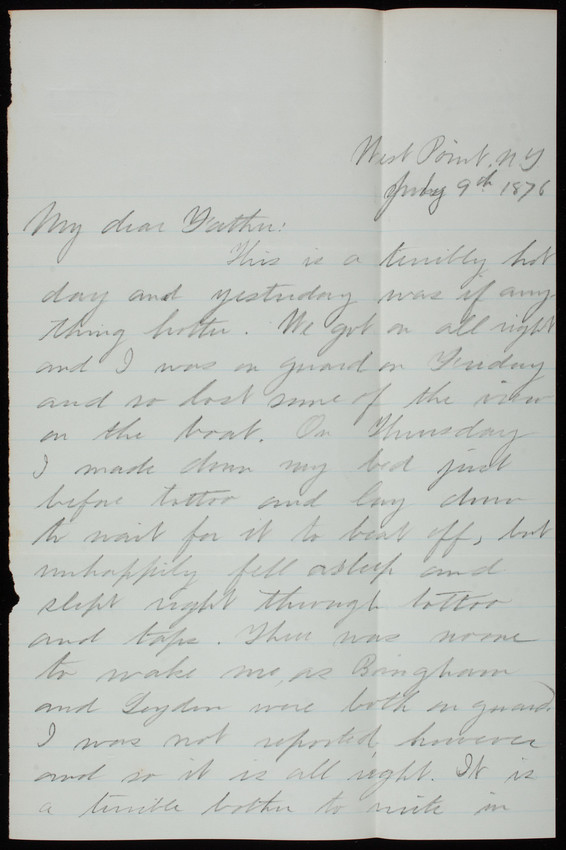 West Point, NY
July 9th 1876
My dear Father:
This is a terribly hot
day and yesterday was if any-
thing hotter. We got on all right
and I was on guard on Tuesday
and so lost some of the view
on the boat. On Thursday
I made down my bed just
before tattoo and lay down
to wait for it to beat off, but
unhappily fell asleep and
slept right through tattoo
and taps. There was no one
to wake me, as Bingham
and Leyden were both on guard.
I was not reported, however
and so it is all right. It is
a terrible bother to write in